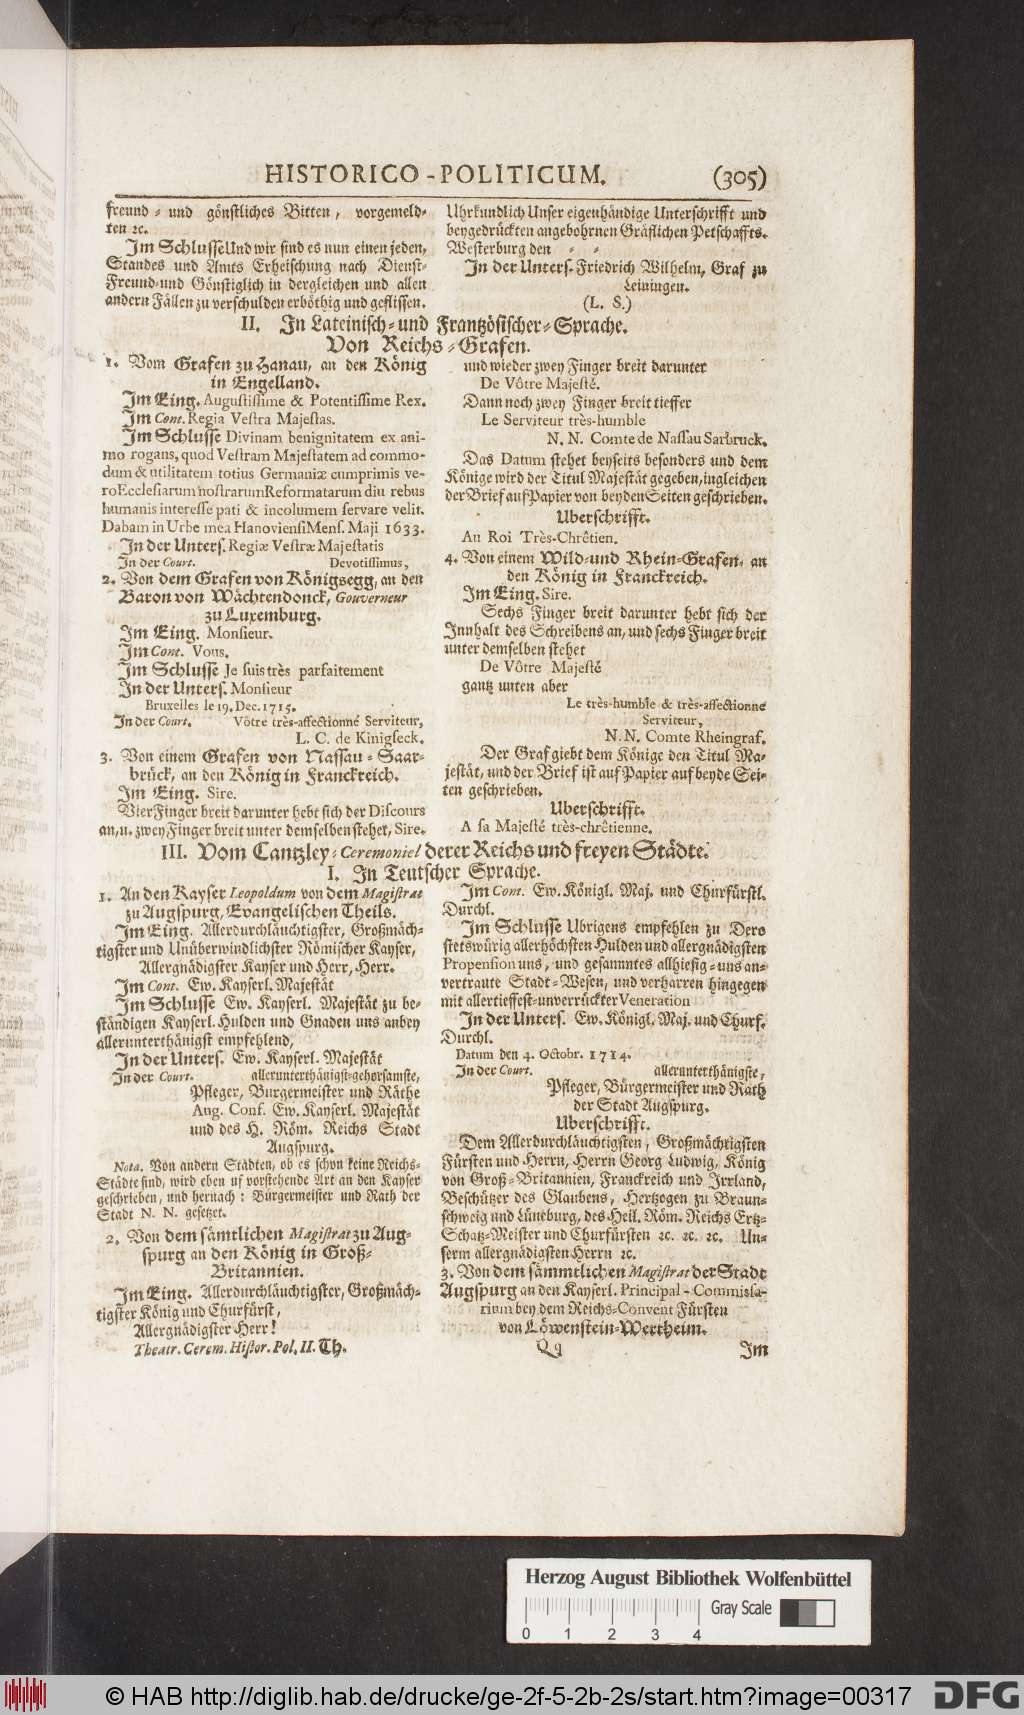 HISTORICO-POLITICUM. (305)
freund- und gönstliches Bitten, vorgemeld-
ten ꝛc.
Im Schlusse Und wir sind es nun einen jeden,
Standes und Amts Erheischung nach Dienst-
Freund-und Gönstiglich in dergleichen und allen
andern Fällen zu verschulden erböthig und geflissen.
Uhrkundlich Unser eigenhändige Unterschrifft und
beygedrückten angebohrnen Gräflichen Petschaffts.
Westerburg den - -
In der Unters. Friedrich Wilhelm, Graf zu
Leiningen.
(L. S.)
II. In Lateinisch-und Frantzösischer-Sprache.
Von Reichs-Grafen.
1. Vom Grafen zu Hanau, an den König
in Engelland.
Im Eing. Augustissime & Potentissime Rex.
Im Cont. Regia Vestra Majestas.
Im Schlusse Divinam benignitatem ex ani-
mo rogans, quod Vestram Majestatem ad commo-
dum & utilitatem totius Germaniæ cumprimis ve-
ro Ecclesiarum nostrarum Reformatarum diu rebus
humanis interesse pati & incolumem servare velit.
Dabam in Urbe mea Hanoviensi Mens. Maji 1633.
In der Unters. Regiæ Vestræ Majestatis
In der Court. Devotissimus,
2. Von dem Grafen von Königsegg, an den
Baron von Wächtendonck, Gouverneur
zu Luxemburg.
Im Eing. Monsieur.
Im Cont. Vous.
Im Schlusse Je suis très parfaitement
In der Unters. Monsieur
Bruxelles le 19. Dec. 1715.
In der Court. Vôtre très-affectionné Serviteur,
L. C. de Kinigseck.
3. Von einem Grafen von Nassau-Saar-
brück, an den König in Franckreich.
Im Eing. Sire.
Vier Finger breit darunter hebt sich der Discours
an, u. zwey Finger breit unter demselben stehet, Sire.
und wieder zwey Finger breit darunter
De Vôtre Majesté.
Dann noch zwey Finger breit tieffer
Le Serviteur très-humble
N. N. Comte de Nassau Sarbruck.
Das Datum stehet beyseits besonders und dem
Könige wird der Titul Majestät gegeben, ingleichen
der Brief auf Papier von beyden Seiten geschrieben.
Uberschrifft.
Au Roi Très-Chrêtien.
4. Von einem Wild-und Rhein-Grafen, an
den König in Franckreich.
Im Eing. Sire.
Sechs Finger breit darunter hebt sich der
Innhalt des Schreibens an, und sechs Finger breit
unter demselben stehet
De Vôtre Majesté
gantz unten aber
Le très-humble & très-affectionné
Serviteur,
N. N. Comte Rheingraf.
Der Graf giebt dem Könige den Titul Ma-
jestät, und der Brief ist auf Papier auf beyde Sei-
ten geschrieben.
Uberschrifft.
A sa Majesté très-chrêtienne.
III. Vom Cantzley-Ceremoniel derer Reichs und freyen Städte.
I. In Teutscher Sprache.
1. An den Kayser Leopoldum von dem Magistrat
zu Augspurg, Evangelischen Theils.
Im Eing. Allerdurchläuchtigster, Großmäch-
tigster und Unüberwindlichster Römischer Kayser,
Allergnädigster Kayser und Herr, Herr.
Im Cont. Ew. Kayserl. Majestät
Im Schlusse Ew. Kayserl. Majestät zu be-
ständigen Kayserl. Hulden und Gnaden uns anbey
allerunterthänigst empfehlend,
In der Unters. Ew. Kayserl. Majestät
In der Court. allerunterthänigst-gehorsamste,
Pfleger, Burgermeister und Räthe
Aug. Conf. Ew. Kayserl. Majestät
und des H. Röm. Reichs Stadt
Augspurg.
Nota. Von andern Städten, ob es schon keine Reichs-
Städte sind, wird eben uf vorstehende Art an den Kayser
geschrieben, und hernach: Bürgermeister und Rath der
Stadt N. N. gesetzet.
2. Von dem sämtlichen Magistrat zu Aug-
spurg an den König in Groß-
Britannien.
Im Eing. Allerdurchläuchtigster, Großmäch-
tigster König und Churfürst,
Allergnädigster Herr!
Im Cont. Ew. Königl. Maj. und Churfürstl.
Durchl.
Im Schlusse Ubrigens empfehlen zu Dero
stetswürig allerhöchsten Hulden und allergnädigsten
Propension uns, und gesamntes allhiesig-uns an-
vertraute Stadt-Wesen, und verharren hingegen
mit allertieffest-unverrückter Veneration
In der Unters. Ew. Königl. Maj. und Churf.
Durchl.
Datum den 4. Octobr. 1714.
In der Court. allerunterthänigste,
Pfleger, Bürgermeister und Rath
der Stadt Augspurg.
Uberschrifft.
Dem Allerdurchläuchtigsten, Großmächtigsten
Fürsten und Herrn, Herrn Georg Ludwig, König
von Groß-Britannien, Franckreich und Irrland,
Beschützer des Glaubens, Hertzogen zu Braun-
schweig und Lüneburg, des Heil. Röm. Reichs Ertz-
Schatz-Meister und Churfürsten ꝛc. ꝛc. ꝛc. Un-
serm allergnädigsten Herrn ꝛc.
3. Von dem sämmtlichen Magistrat der Stadt
Augspurg an den Kayserl. Principal-Commissa-
rium bey dem Reichs-Convent Fürsten
von Löwenstein-Wertheim.
Theatr. Cerem. Histor. Pol. II. Th. Qq Im
Herzog August Bibliothek Wolfenbüttel
Gray Scale
0 1 2 3 4
© HAB http://diglib.hab.de/drucke/ge-2f-5-2b-2s/start.htm?image=00317 DFG